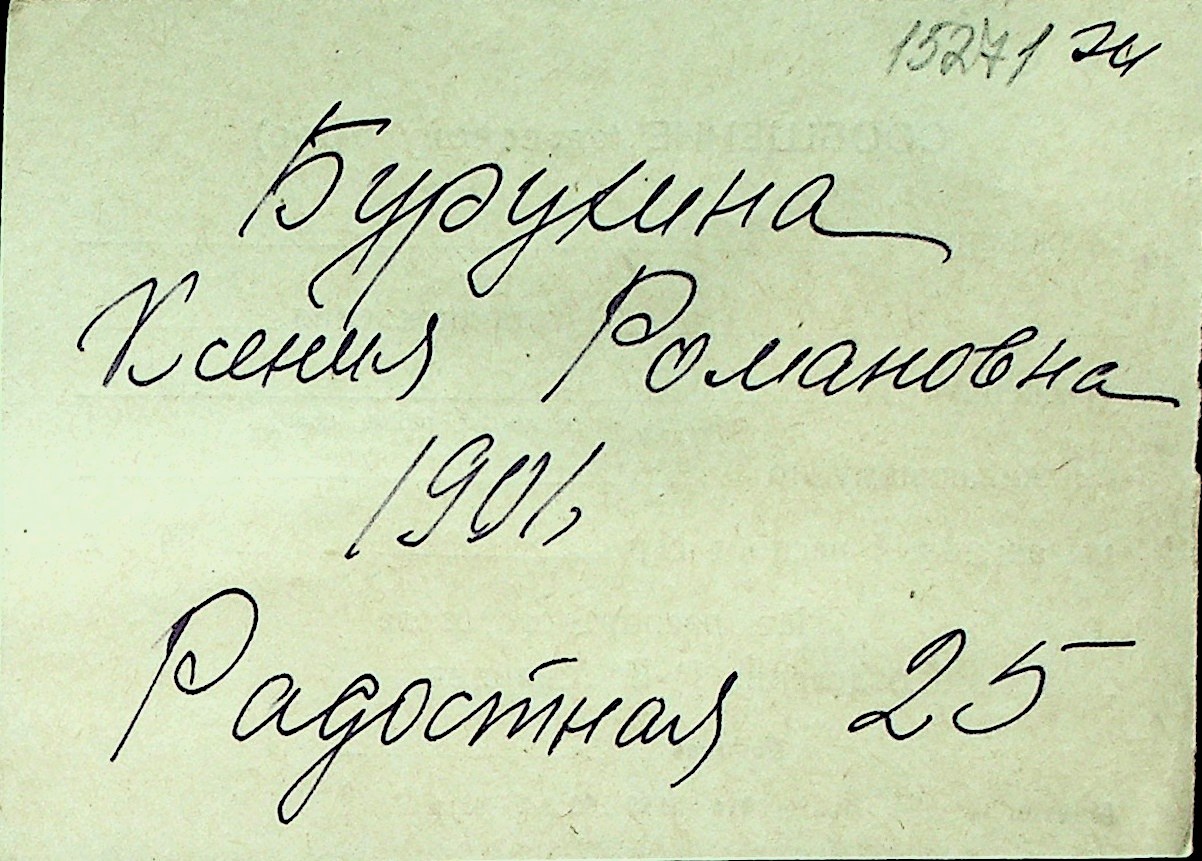 15271 эи
Бурухина
Ксения Романовна
1901,
Радостная 25